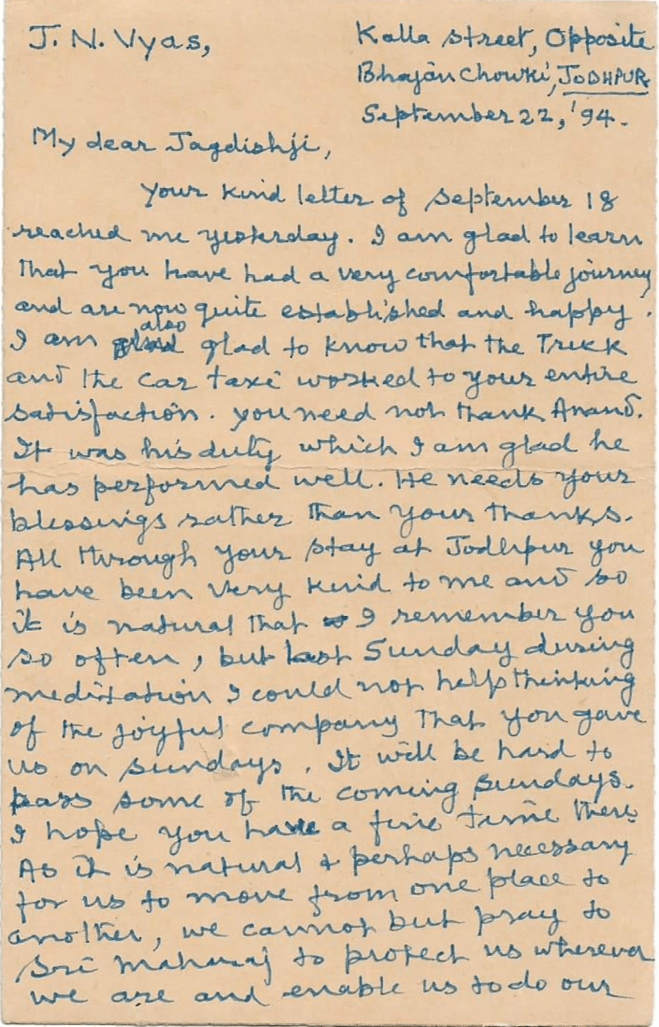 J. N. Vyas,
Kalla street, Opposite
Bhajan Chowki, JODHPUR
September 22, '94.
My dear Jagdishji,
Your kind letter of September 18
reached me yesterday. I am glad to learn
that you have had a very comfortable journey
and are now quite established and happy.
also
I am glad glad to know that the Trick
and the car taxi worked to your entire
satisfaction. You need not thank Anand.
It was his duty which I am glad he
has performed well. He needs your
blessings rather than your thanks.
All through your stay at Jodhpur you
have been very kind to me and so
it is natural that I remember you
so often, but last Sunday during
meditation I could not help thinking
of the joyful company that you gave
us on Sundays. It will be hard to
pass some of the coming Sundays.
I hope you have a fine time there
As it is natural & perhaps necessary
for us to move from one place to
another, we cannot but pray to
Sri Maharaj to protect us wherever
we are and enable us to do our